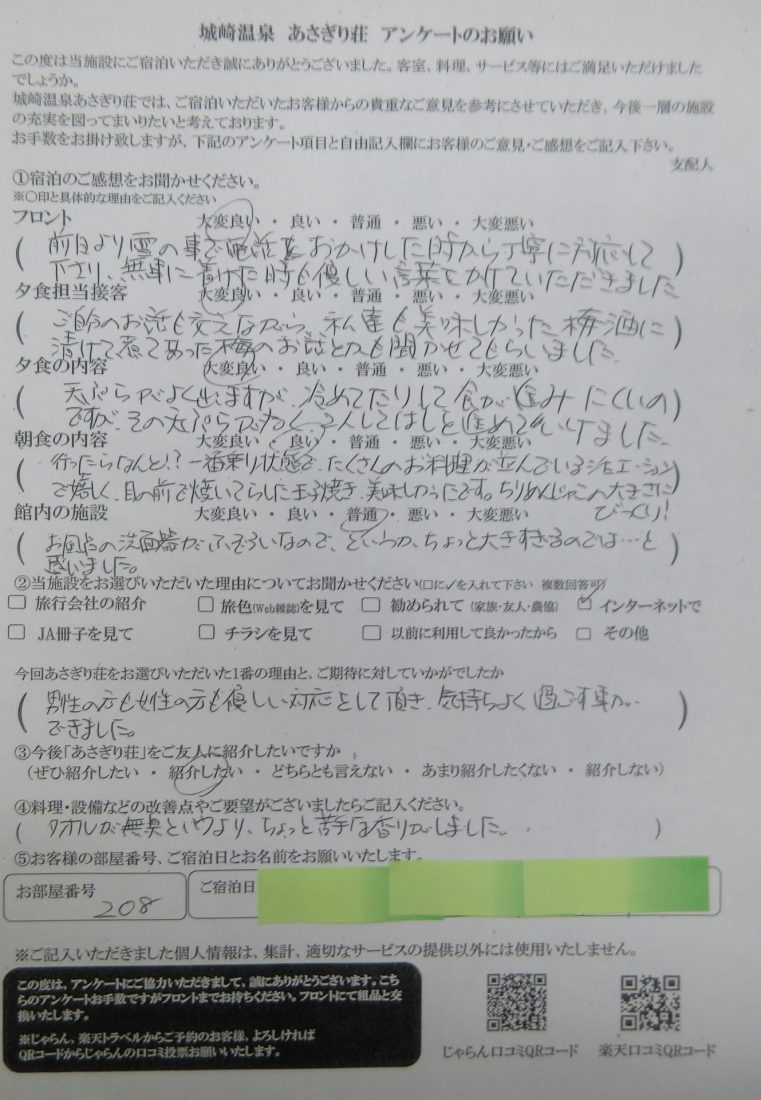 城崎温泉 あさぎり荘 アンケートのお願い
この度は当施設にご宿泊いただき誠にありがとうございました。客室、料理、サービス等にはご満足いただけました
でしょうか。
城崎温泉あさぎり荘では、ご宿泊いただいたお客様からの貴重なご意見を参考にさせていただき、今後一層の施設
の充実を図ってまいりたいと考えております。
お手数をお掛け致しますが、下記のアンケート項目と自由記入欄にお客様のご意見・ご感想をご記入下さい。
支配人
①宿泊のご感想をお聞かせください。
※○印と具体的な理由をご記入ください
フロント 大変良い ・ 良い ・ 普通 ・ 悪い ・ 大変悪い
(前日より雪の事で電話をおかけした時から丁寧に対応して
下さり、無事に着けた時も優しい言葉をかけていただきました)
夕食担当接客 大変良い ・ 良い ・ 普通 ・ 悪い ・ 大変悪い
(ご自分のお話も交えながら、私達も美味しかった梅酒に
漬けて煮てあった梅のお話とかも聞かせてもらいました。)
夕食の内容 大変良い ・ 良い ・ 普通 ・ 悪い ・ 大変悪い
(天ぷらがよく出ますが、冷めてたりして食が進みにくいの
ですが、その天ぷらが
朝食の内容 大変良い ・ 良い ・ 普通 ・ 悪い ・ 大変悪い
(行ったらなんと!?一番乗り状態で、たくさんのお料理が並んでいるシチュエーション
で嬉しく、目の前で焼いてもらった玉子焼き、美味しかったです。ちりめんじゃこの大きさに
びっくり!)
館内の施設 大変良い ・ 良い ・ 普通 ・ 悪い ・ 大変悪い
(お風呂の洗面器がふぞろいなので、というか、ちょっと大きすぎるのでは…と
思いました。)
②当施設をお選びいただいた理由についてお聞かせください(□に✓を入れて下さい 複数回答可)
□ 旅行会社の紹介 □ 旅色(Web雑誌)を見て □ 勧められて (家族・友人・農協) ☑ インターネットで
□ JA冊子を見て □ チラシを見て □ 以前に利用して良かったから □ その他
今回あさぎり荘をお選びいただいた1番の理由と、ご期待に対していかがでしたか
(男性の方も女性の方も優しい対応をして頂き、気持ちよく過ごす事が
できました。)
③今後「あさぎり荘」をご友人に紹介したいですか
(ぜひ紹介したい ・ 紹介したい ・ どちらとも言えない ・ あまり紹介したくない ・ 紹介しない)
④料理・設備などの改善点やご要望がございましたらご記入ください。
(タオルが無臭というより、ちょっと苦手な香りがしました。)
⑤お客様の部屋番号、ご宿泊日とお名前をお願いいたします。
お部屋番号 208 ご宿泊日
※ご記入いただきました個人情報は、集計、適切なサービスの提供以外には使用いたしません。
この度は、アンケートにご協力いただきまして、誠にありがとうございます。こち
らのアンケートお手数ですがフロントまでお持ちください。フロントにて粗品と交
換いたします。
※じゃらん、楽天トラベルからご予約のお客様、よろしければ
QRコードからじゃらんの口コミ投票お願いいたします。
じゃらん口コミQRコード 楽天口コミQRコード